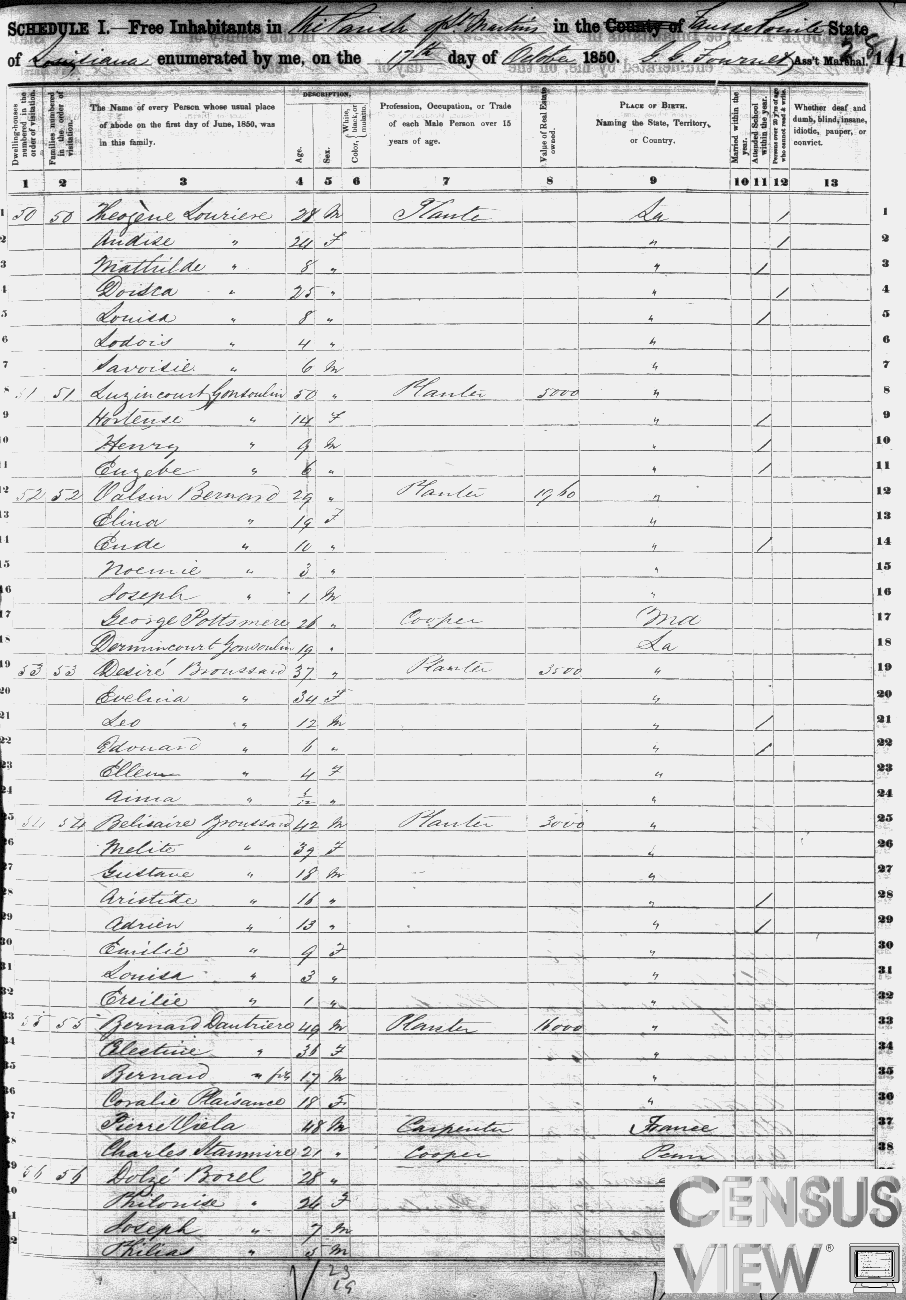 SCHEDULE I.—Free Inhabitants in the Parish of St Martin in the County of State
of Louisiana enumerated by me, on the 17th day of October 1850. Ass't Marshal.
Dwelling-houses numbered in the order of visitation.
Families numbered in the order of visitation.
The Name of every Person whose usual place of abode on the first day of June, 1850, was in this family.
DESCRIPTION.
Age.
Sex.
Color, White, black, or mulatto.
Profession, Occupation, or Trade of each Male Person over 15 years of age.
Value of Real Estate owned.
PLACE OF BIRTH. Naming the State, Territory, or Country.
Married within the year.
Attended School within the year.
Persons over 20 y'rs of age who cannot read & write.
Whether deaf and dumb, blind, insane, idiotic, pauper, or convict.
1 2 3 4 5 6 7 8 9 10 11 12 13
1 50 50 Theogène Louriere 28 M Plante La / 1
2 Andise " 24 F " / 2
3 Mathilde " 8 " " / 3
4 Doisca " 25 " " / 4
5 Louisa " 8 " " / 5
6 Lodois " 4 " " 6
7 Savoisie " 6 M " 7
8 51 51 Luzincourt Gonsoulin 50 " Planter 5000 " 8
9 Hortense " 14 F " / 9
10 Henry " 9 M " / 10
11 Euzebe " 6 " " / 11
12 52 52 Valsin Bernard 29 " Planter 1960 " 12
13 Elina " 19 F " 13
14 Eude " 10 " " / 14
15 Noemie " 3 " " 15
16 Joseph " 1 M " 16
17 George Pottsmere 26 " Cooper Md 17
18 Dermincourt Gonsoulin 19 " La 18
19 53 53 Desiré Broussard 37 " Planter 3500 " 19
20 Evelina " 34 F " 20
21 Leo " 12 M " / 21
22 Edouard " 6 " " / 22
23 Ellen " 4 F " 23
24 Aima " " " 24
25 54 54 Belisaire Broussard 42 M Planter 3000 " 25
26 Melite " 39 F " 26
27 Gustave " 18 M " 27
28 Aristide " 16 " " / 28
29 Adrien " 13 " " / 29
30 Emilié " 9 F " 30
31 Louisa " 3 " " 31
32 Ersilie " 1 " " 32
33 55 55 Bernard Dautriere 49 M Planter 16000 " 33
34 Celestine " 36 F " 34
35 Bernard " 17 M " 35
36 Coralie Plaisance 18 F " 36
37 Pierre Viela 48 M Carpenter France 37
38 Charles Stanmire 21 " Cooper Penn 38
39 56 56 Dolzé Borel 28 "
40 Philonise " 24 F
Joseph " 7 M
Philias " 5 M
23
19
CENSUS
VIEW®